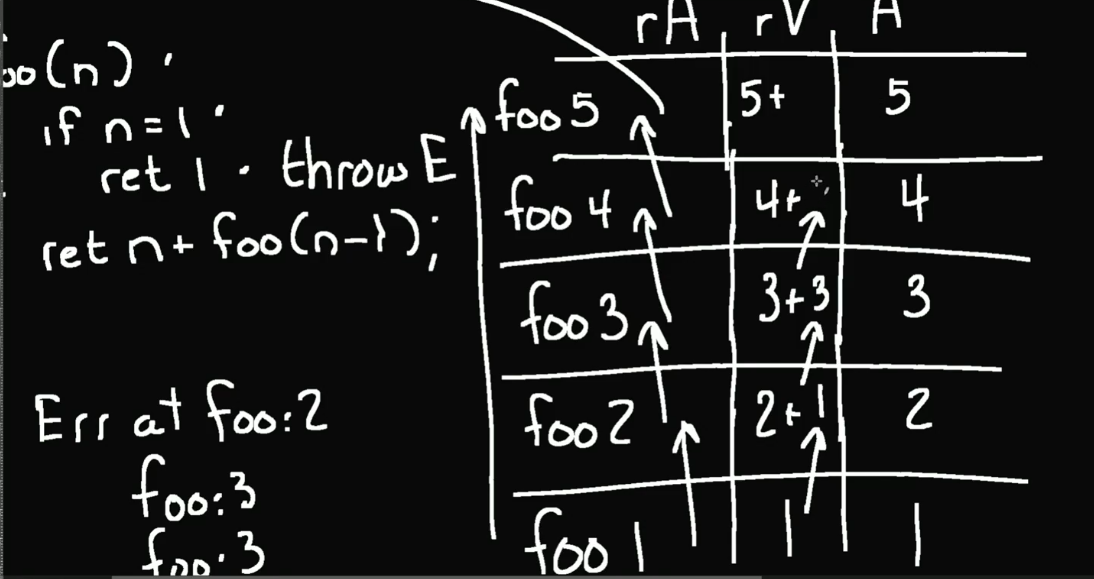 oo(n)
if n=1
ret 1 · throw E
ret n+ foo(n-1);
Err at foo:2
foo:3
foo:3
rA rV A
foo 5 5+ 5
foo 4 4+ 4
foo 3 3+3 3
foo 2 2+1 2
foo 1 1 1